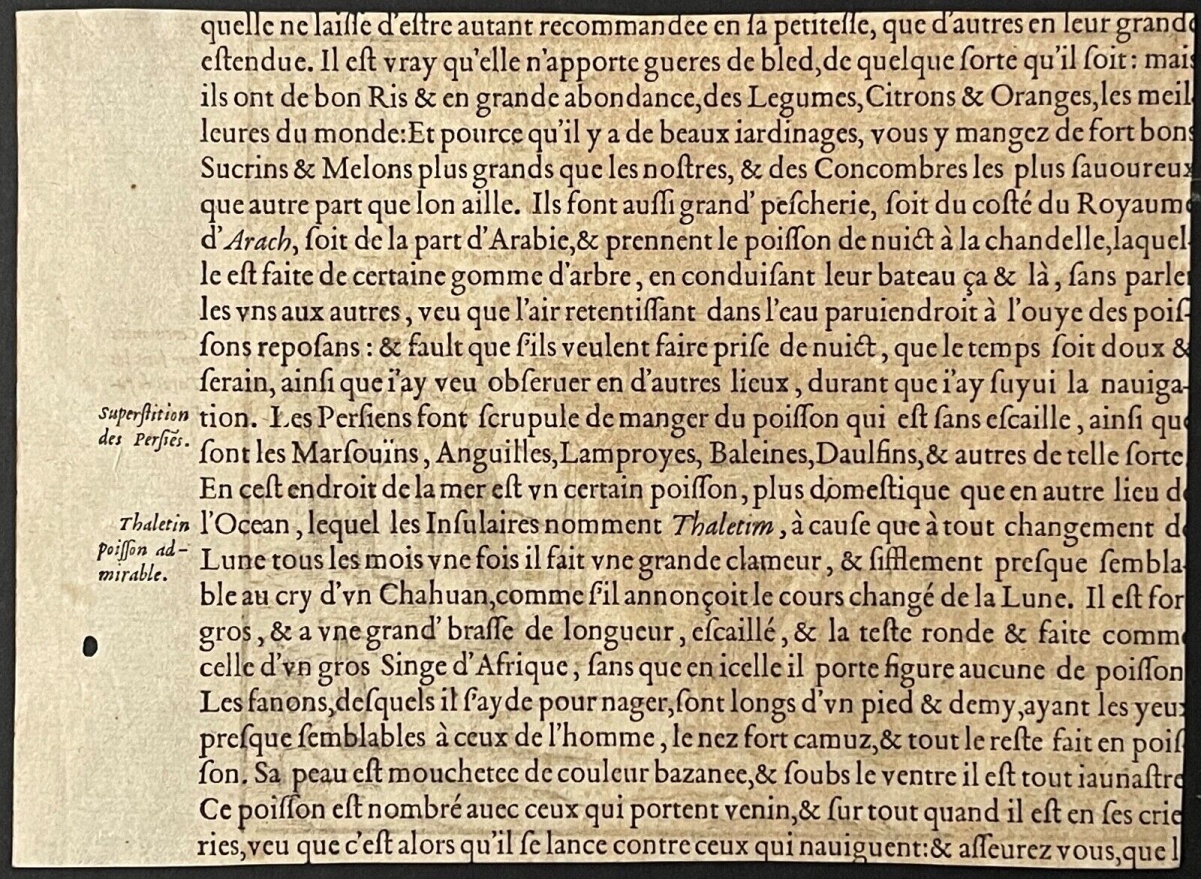 quelle ne laiſſe d'eſtre autant recommandee en ſa petiteſſe, que d'autres en leur grand
eſtendue. Il eſt vray qu'elle n'apporte gueres de bled,de quelque ſorte qu'il ſoit: mais
ils ont de bon Ris & en grande abondance,des Legumes,Citrons & Oranges,les meil
leures du monde:Et pource qu'il y a de beaux iardinages, vous y mangez de fort bons
Sucrins & Melons plus grands que les noſtres, & des Concombres les plus ſauoureux
que autre part que lon aille. Ils font auſſi grand' peſcherie, ſoit du coſté du Royaume
d'Arach, ſoit de la part d'Arabie,& prennent le poiſſon de nuict à la chandelle,laquel-
le eſt faite de certaine gomme d'arbre, en conduiſant leur bateau ça & là, ſans parler
les vns aux autres, veu que l'air retentiſſant dans l'eau paruiendroit à l'ouye des poiſ-
ſons repoſans: & fault que ſ'ils veulent faire priſe de nuict, que le temps ſoit doux &
ſerain, ainſi que i'ay veu obſeruer en d'autres lieux, durant que i'ay ſuyui la nauiga-
Superſtition
des Perſiẽs.
tion. Les Perſiens font ſcrupule de manger du poiſſon qui eſt ſans eſcaille, ainſi que
ſont les Marſouïns, Anguilles,Lamproyes, Baleines,Daulfins,& autres de telle ſorte
En ceſt endroit de la mer eſt vn certain poiſſon, plus domeſtique que en autre lieu de
Thaletin
poiſſon ad-
mirable.
l'Ocean, lequel les Inſulaires nomment Thaletim, à cauſe que à tout changement de
Lune tous les mois vne fois il fait vne grande clameur, & ſifflement preſque ſembla-
ble au cry d'vn Chahuan,comme ſ'il annonçoit le cours changé de la Lune. Il eſt for
gros, & a vne grand' braſſe de longueur, eſcaillé, & la teſte ronde & faite comme
celle d'vn gros Singe d'Afrique, ſans que en icelle il porte figure aucune de poiſſon
Les fanons,deſquels il ſ'ayde pour nager,ſont longs d'vn pied & demy,ayant les yeux
preſque ſemblables à ceux de l'homme, le nez fort camuz,& tout le reſte fait en poiſ
ſon. Sa peau eſt mouchetee de couleur bazanee,& ſoubs le ventre il eſt tout iaunaſtre
Ce poiſſon eſt nombré auec ceux qui portent venin,& ſur tout quand il eſt en ſes crie
ries,veu que c'eſt alors qu'il ſe lance contre ceux qui nauiguent:& aſſeurez vous,que l